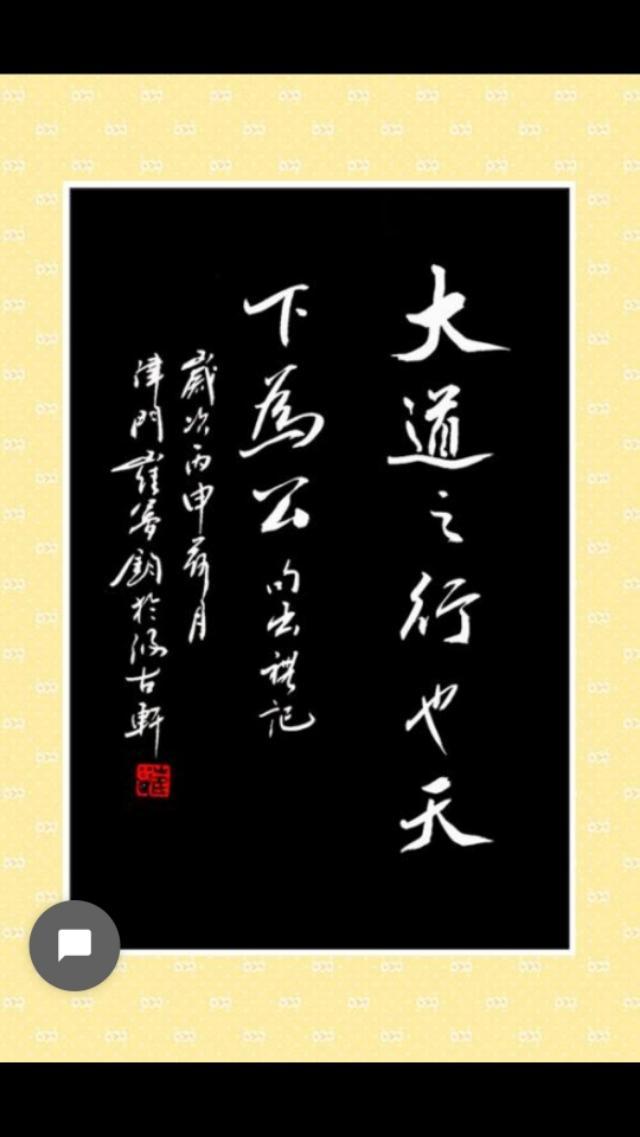 大道之行也天
下為公句出禮記
歲次丙申月
津門崔鈞於古軒